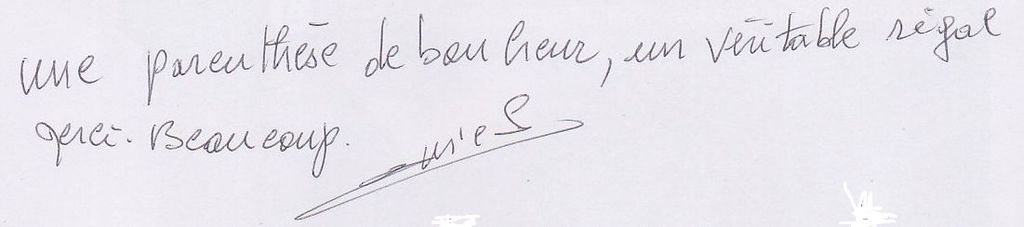 une parenthèse de bonheur, un véritable régal
merci. Beaucoup.